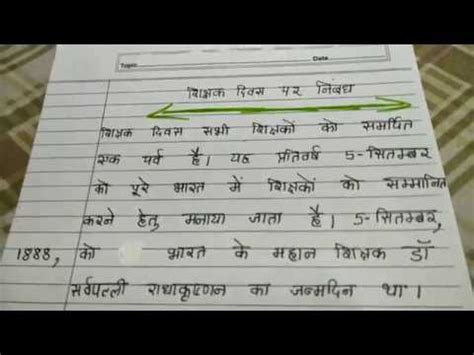 Topic
Date
शिक्षक दिवस पर निबंध
शिक्षक दिवस सभी शिक्षकों को समर्पित
एक पर्व है। यह प्रतिवर्ष 5-सितम्बर
को पूरे भारत में शिक्षकों को सम्मानित
करने हेतु मनाया जाता है। 5-सितम्बर,
1888, को भारत के महान शिक्षक डॉ
सर्वपल्ली राधाकृष्णन का जन्मदिन था।